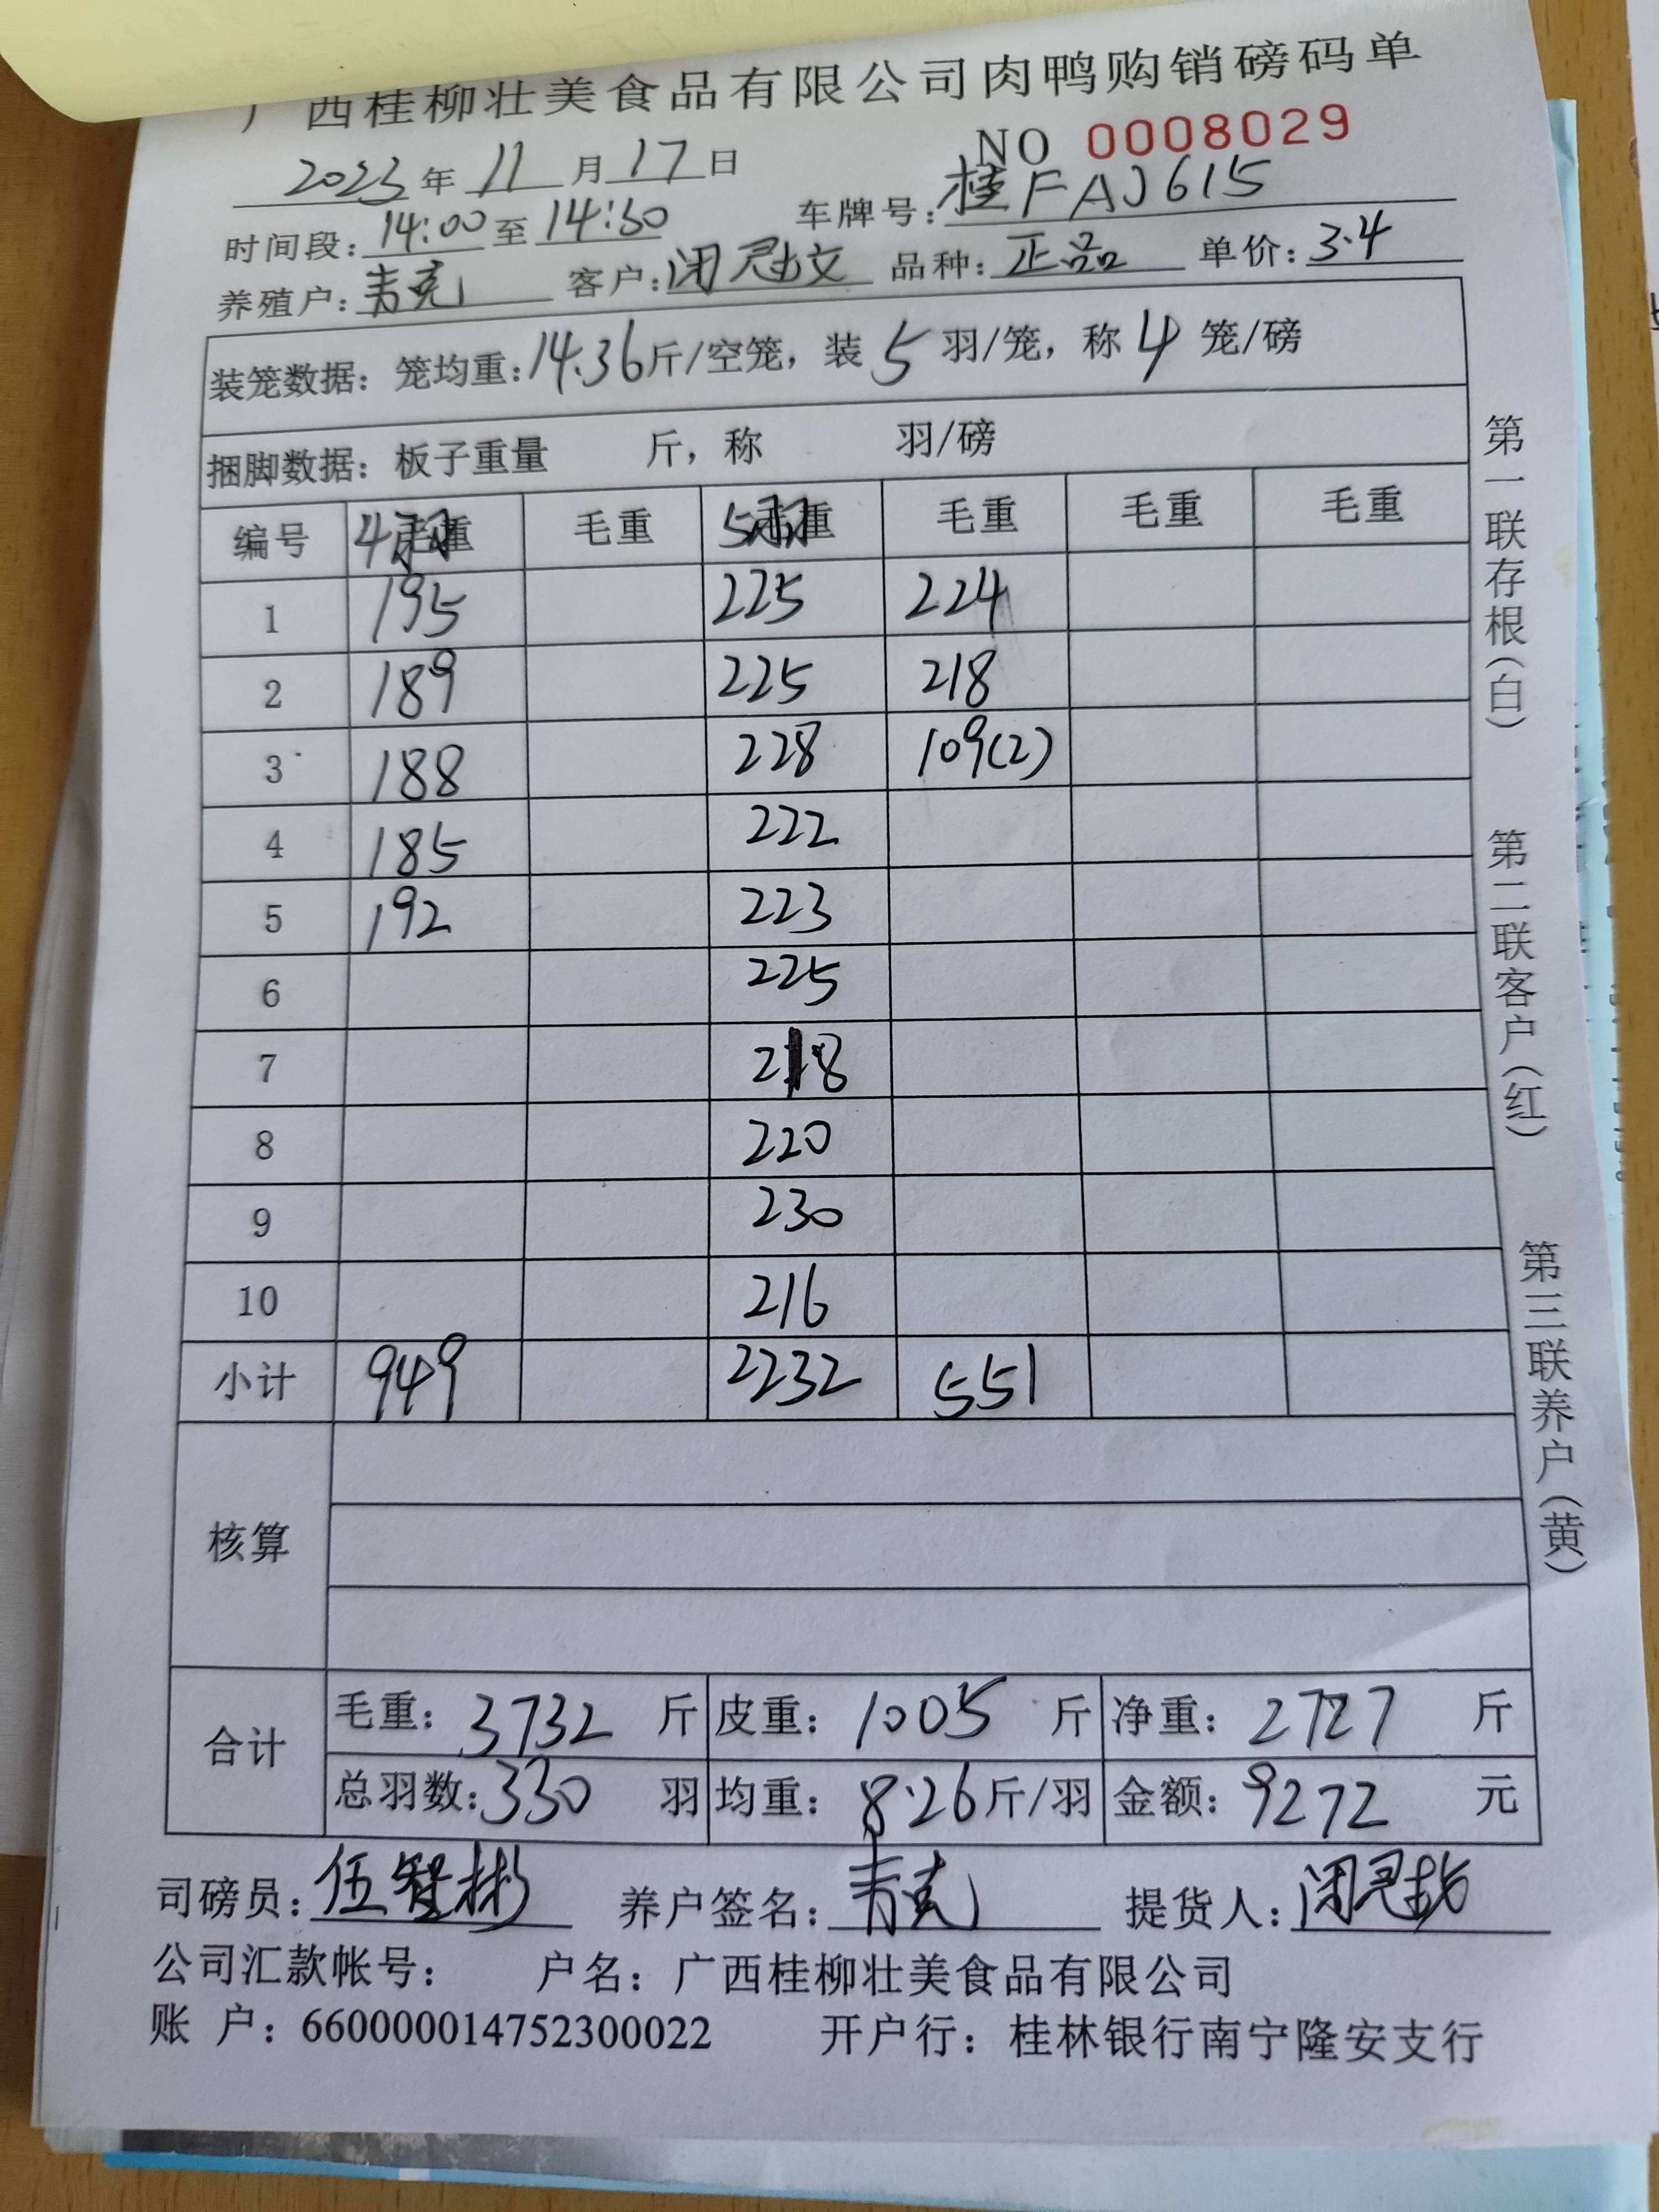 广西桂柳壮美食品有限公司肉鸭购销磅码单
NO 0008029
2023年11月17日
时间段:14:00至14:30 车牌号:桂FAJ615
养殖户: 客户: 品种:正品 单价:3.4
装笼数据: 笼均重:14.36斤/空笼, 装5羽/笼, 称4笼/磅
捆脚数据: 板子重量 斤, 称 羽/磅
编号 4羽 毛重 毛重 5羽 毛重 毛重 毛重 毛重
1 195 225 224
2 189 225 218
3 188 228 109(2)
4 185 222
5 192 223
6 225
7 218
8 220
9 230
10 216
小计 949 2232 551
核算
合计 毛重: 3732 斤 皮重: 1005 斤 净重: 2727 斤
总羽数: 330 羽 均重: 8.26斤/羽 金额: 9272 元
司磅员:伍智彬 养户签名: 提货人:
公司汇款帐号: 户名: 广西桂柳壮美食品有限公司
账 户: 660000014752300022 开户行: 桂林银行南宁隆安支行
第一联存根(白) 第二联客户(红) 第三联养户(黄)